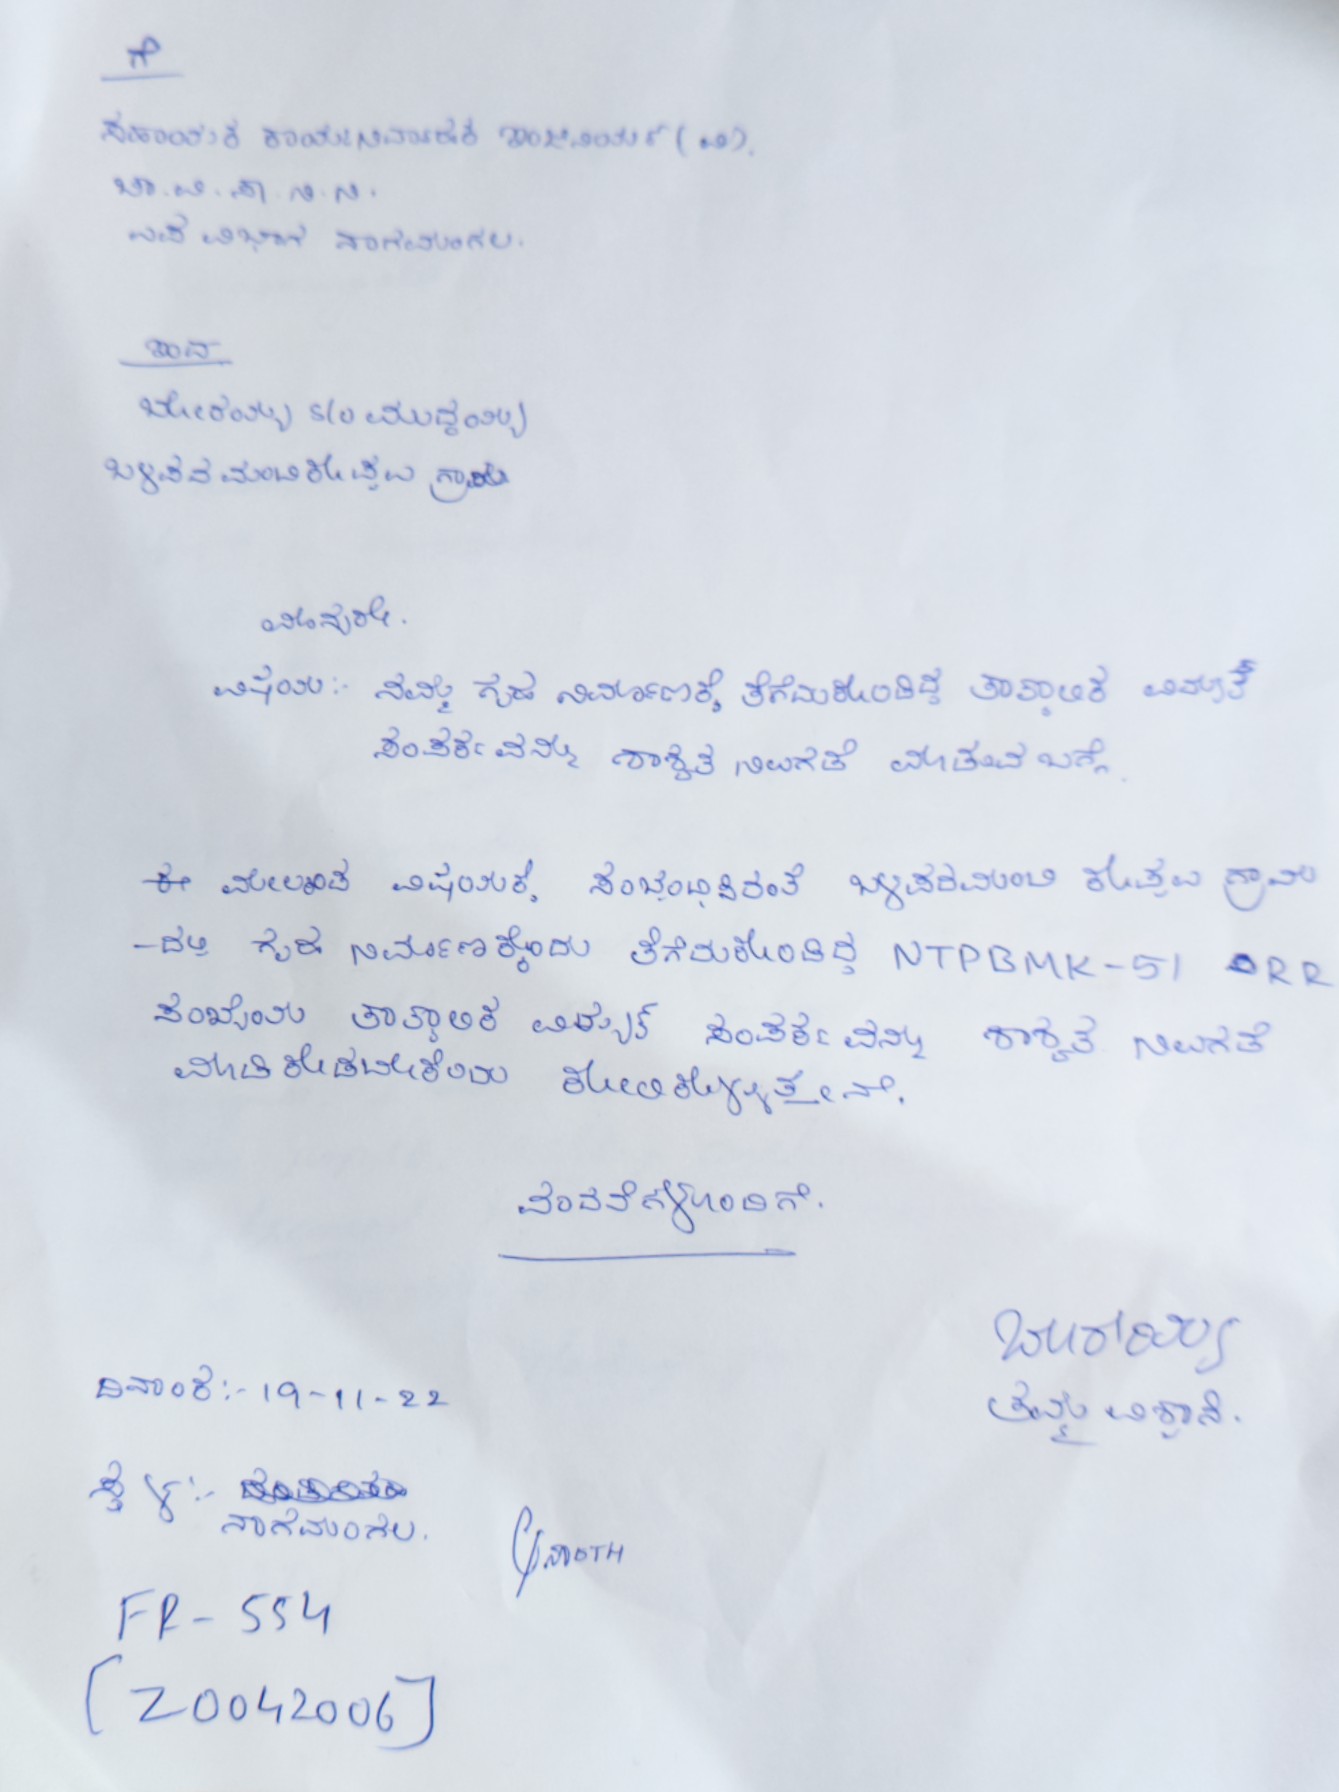 ಗೆ
ಸಹಾಯಕ ಕಾರ್ಯನಿರ್ವಾಹಕ ಇಂಜಿನಿಯರ್ (ವಿ).
ಚಾ.ವಿ.ಸ.ನಿ.ನಿ.
ಉಪ ವಿಭಾಗ ನಾಗಮಂಗಲ.
ಇಂದ
ಬೋರಯ್ಯ S/O ಮುದ್ದಯ್ಯ
ಬ್ಯಾಡರಮಂಟಿಕೊಪ್ಪಲು ಗ್ರಾಮ
ಮಾನ್ಯರೇ.
ವಿಷಯ:- ನಮ್ಮ ಗೃಹ ನಿರ್ಮಾಣಕ್ಕೆ ತೆಗೆದುಕೊಂಡಿದ್ದ ತಾತ್ಕಾಲಿಕ ವಿದ್ಯುತ್
ಸಂಪರ್ಕವನ್ನು ಶಾಶ್ವತ ನಿಲುಗಡೆ ಮಾಡುವ ಬಗ್ಗೆ.
ಈ ಮೇಲ್ಕಂಡ ವಿಷಯಕ್ಕೆ ಸಂಬಂಧಿಸಿದಂತೆ ಕೊಪ್ಪಲು ಗ್ರಾಮ
-ದಲ್ಲಿ ಗೃಹ ನಿರ್ಮಾಣಕ್ಕೆಂದು ತೆಗೆದುಕೊಂಡಿದ್ದ NTPBMK-51 RR
ಸಂಖ್ಯೆಯ ತಾತ್ಕಾಲಿಕ ವಿದ್ಯುತ್ ಸಂಪರ್ಕವನ್ನು ಶಾಶ್ವತ ನಿಲುಗಡೆ
ಮಾಡಿಕೊಡಬೇಕೆಂದು ಕೇಳಿಕೊಳ್ಳುತ್ತೇನೆ.
ವಂದನೆಗಳೊಂದಿಗೆ.
ಬೋರಯ್ಯ
ತಮ್ಮ ವಿಶ್ವಾಸಿ.
ದಿನಾಂಕ:- 19-11-22
ಸ್ಥಳ:-
ನಾಗಮಂಗಲ.
FR-554
[20042006]